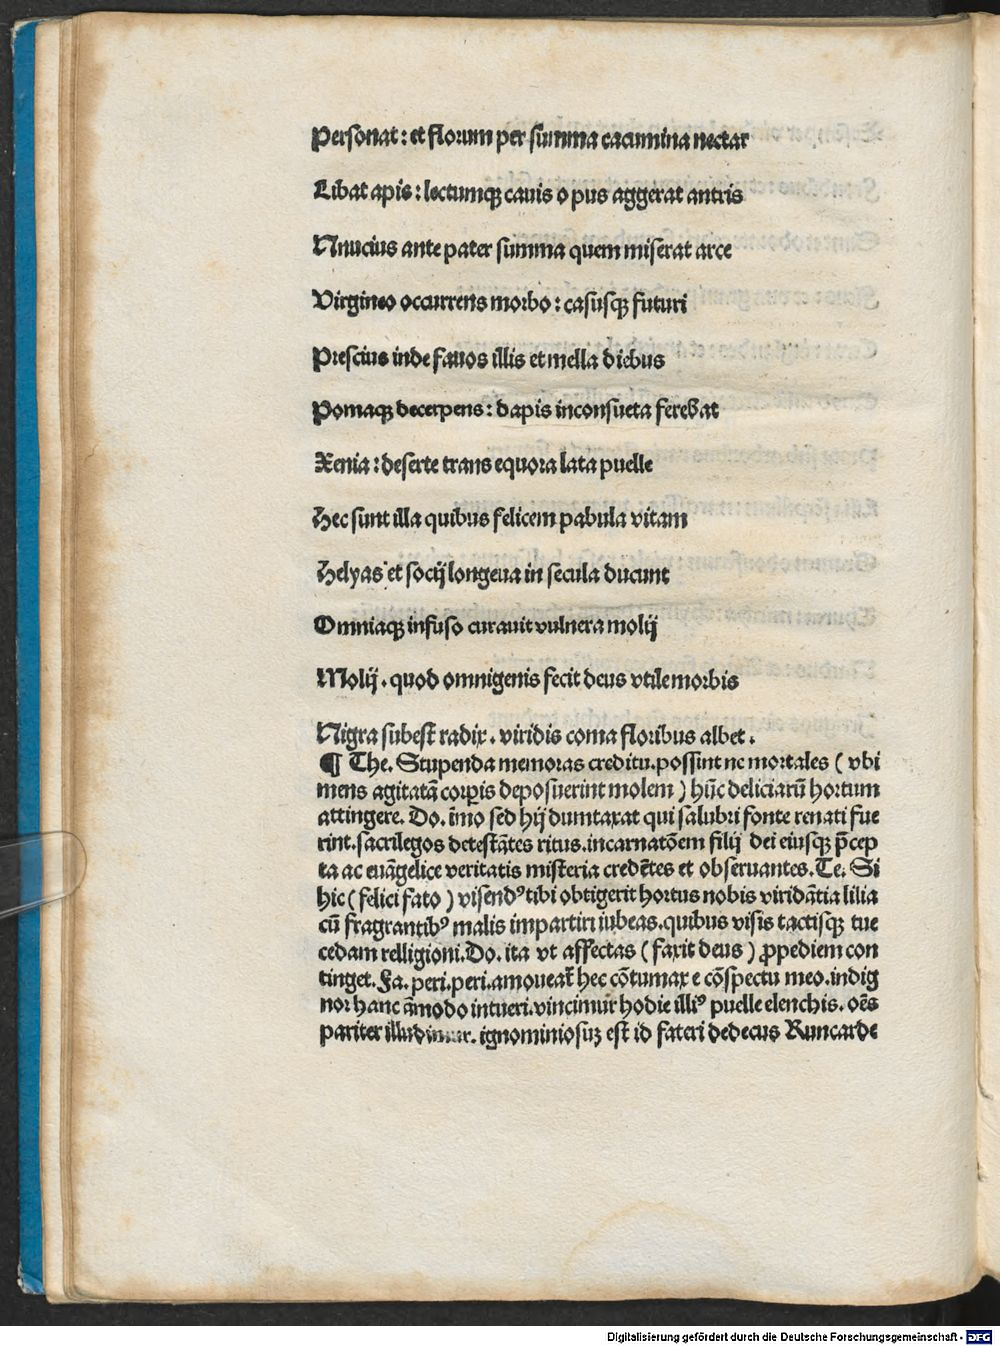 Personat: et florum per summa cacumina nectar
Libat apis: lectumqꝫ cauis o pus aggerat antris
Nnucius ante pater summa quem miserat arce
Virgineo occurrens morbo: casusqꝫ futuri
Prescius inde fauos illis et mella diebus
Pomaqꝫ decerpens: dapis inconsueta ferebat
Xenia: deserte trans equora lata puelle
Hec sunt illa quibus felicem pabula vitam
Helyas et socij longeua in secula ducunt
Omniaqꝫ infuso curauit vulnera molij
Molij. quod omnigenis fecit deus vtile morbis
Nigra subest radix. viridis coma floribus albet.
¶ The. Stupenda memoras creditu. possint ne mortales (vbi
mens agitatā corꝑis deposuerint molem) hūc deliciarū hortum
attingere. Do. īmo sed hij dumtaxat qui salubri fonte renati fue
rint. sacrilegos detestātes ritus. incarnatōem filij dei eiusqꝫ p̄cep
ta ac euāgelice veritatis misteria credētes et obseruantes. Te. Si
hic (felici fato) visendꝰ tibi obtigerit hortus nobis viridātia lilia
cū fragrantibꝰ malis impartiri iubeas. quibus visis tactisqꝫ tue
cedam relligioni. Do. ita vt affectas (faxit deus) ꝓpediem con
tinget. Fa. peri. peri. amoueat̄ hec cōtumax e cōspectu meo. indig
nor hanc āmodo intueri. vincimur hodie illiꝰ puelle elenchis. oēs
pariter illudimur. ignominiosuꝫ est id fateri dedecus Runcarde
Digitalisierung gefördert durch die Deutsche Forschungsgemeinschaft - DFG